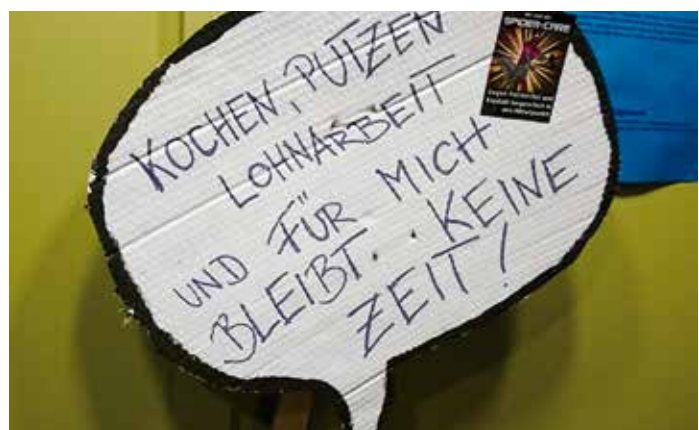 KOCHEN, PUTZEN
LOHNARBEIT
UND FÜR MICH
BLEIBT.. KEINE
ZEIT!
SPIDER-CARE